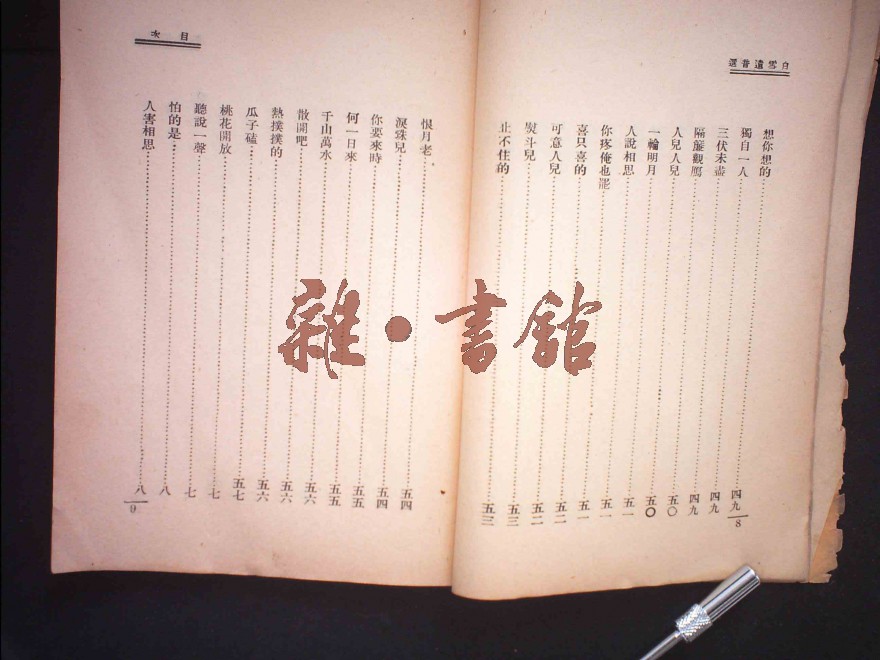 白雪遺音選
想你想的 四九
獨自一人 四九
三伏未盡 四九
隔簾觀 五〇
人兒人兒 五〇
一輪明月 五一
人說相思 五一
你疼俺也罷 五一
喜只喜的 五二
可意人兒 五二
熨斗兒 五三
止不住的 五三
8
目次
恨月老 五四
淚珠兒 五四
你要來時 五五
何一日來 五五
千山萬水 五六
散開吧 五六
熱撲撲的 五六
瓜子磕 五七
桃花開放 七
聽說一聲 七
怕的是 八
人害相思 八
9
雜·書館